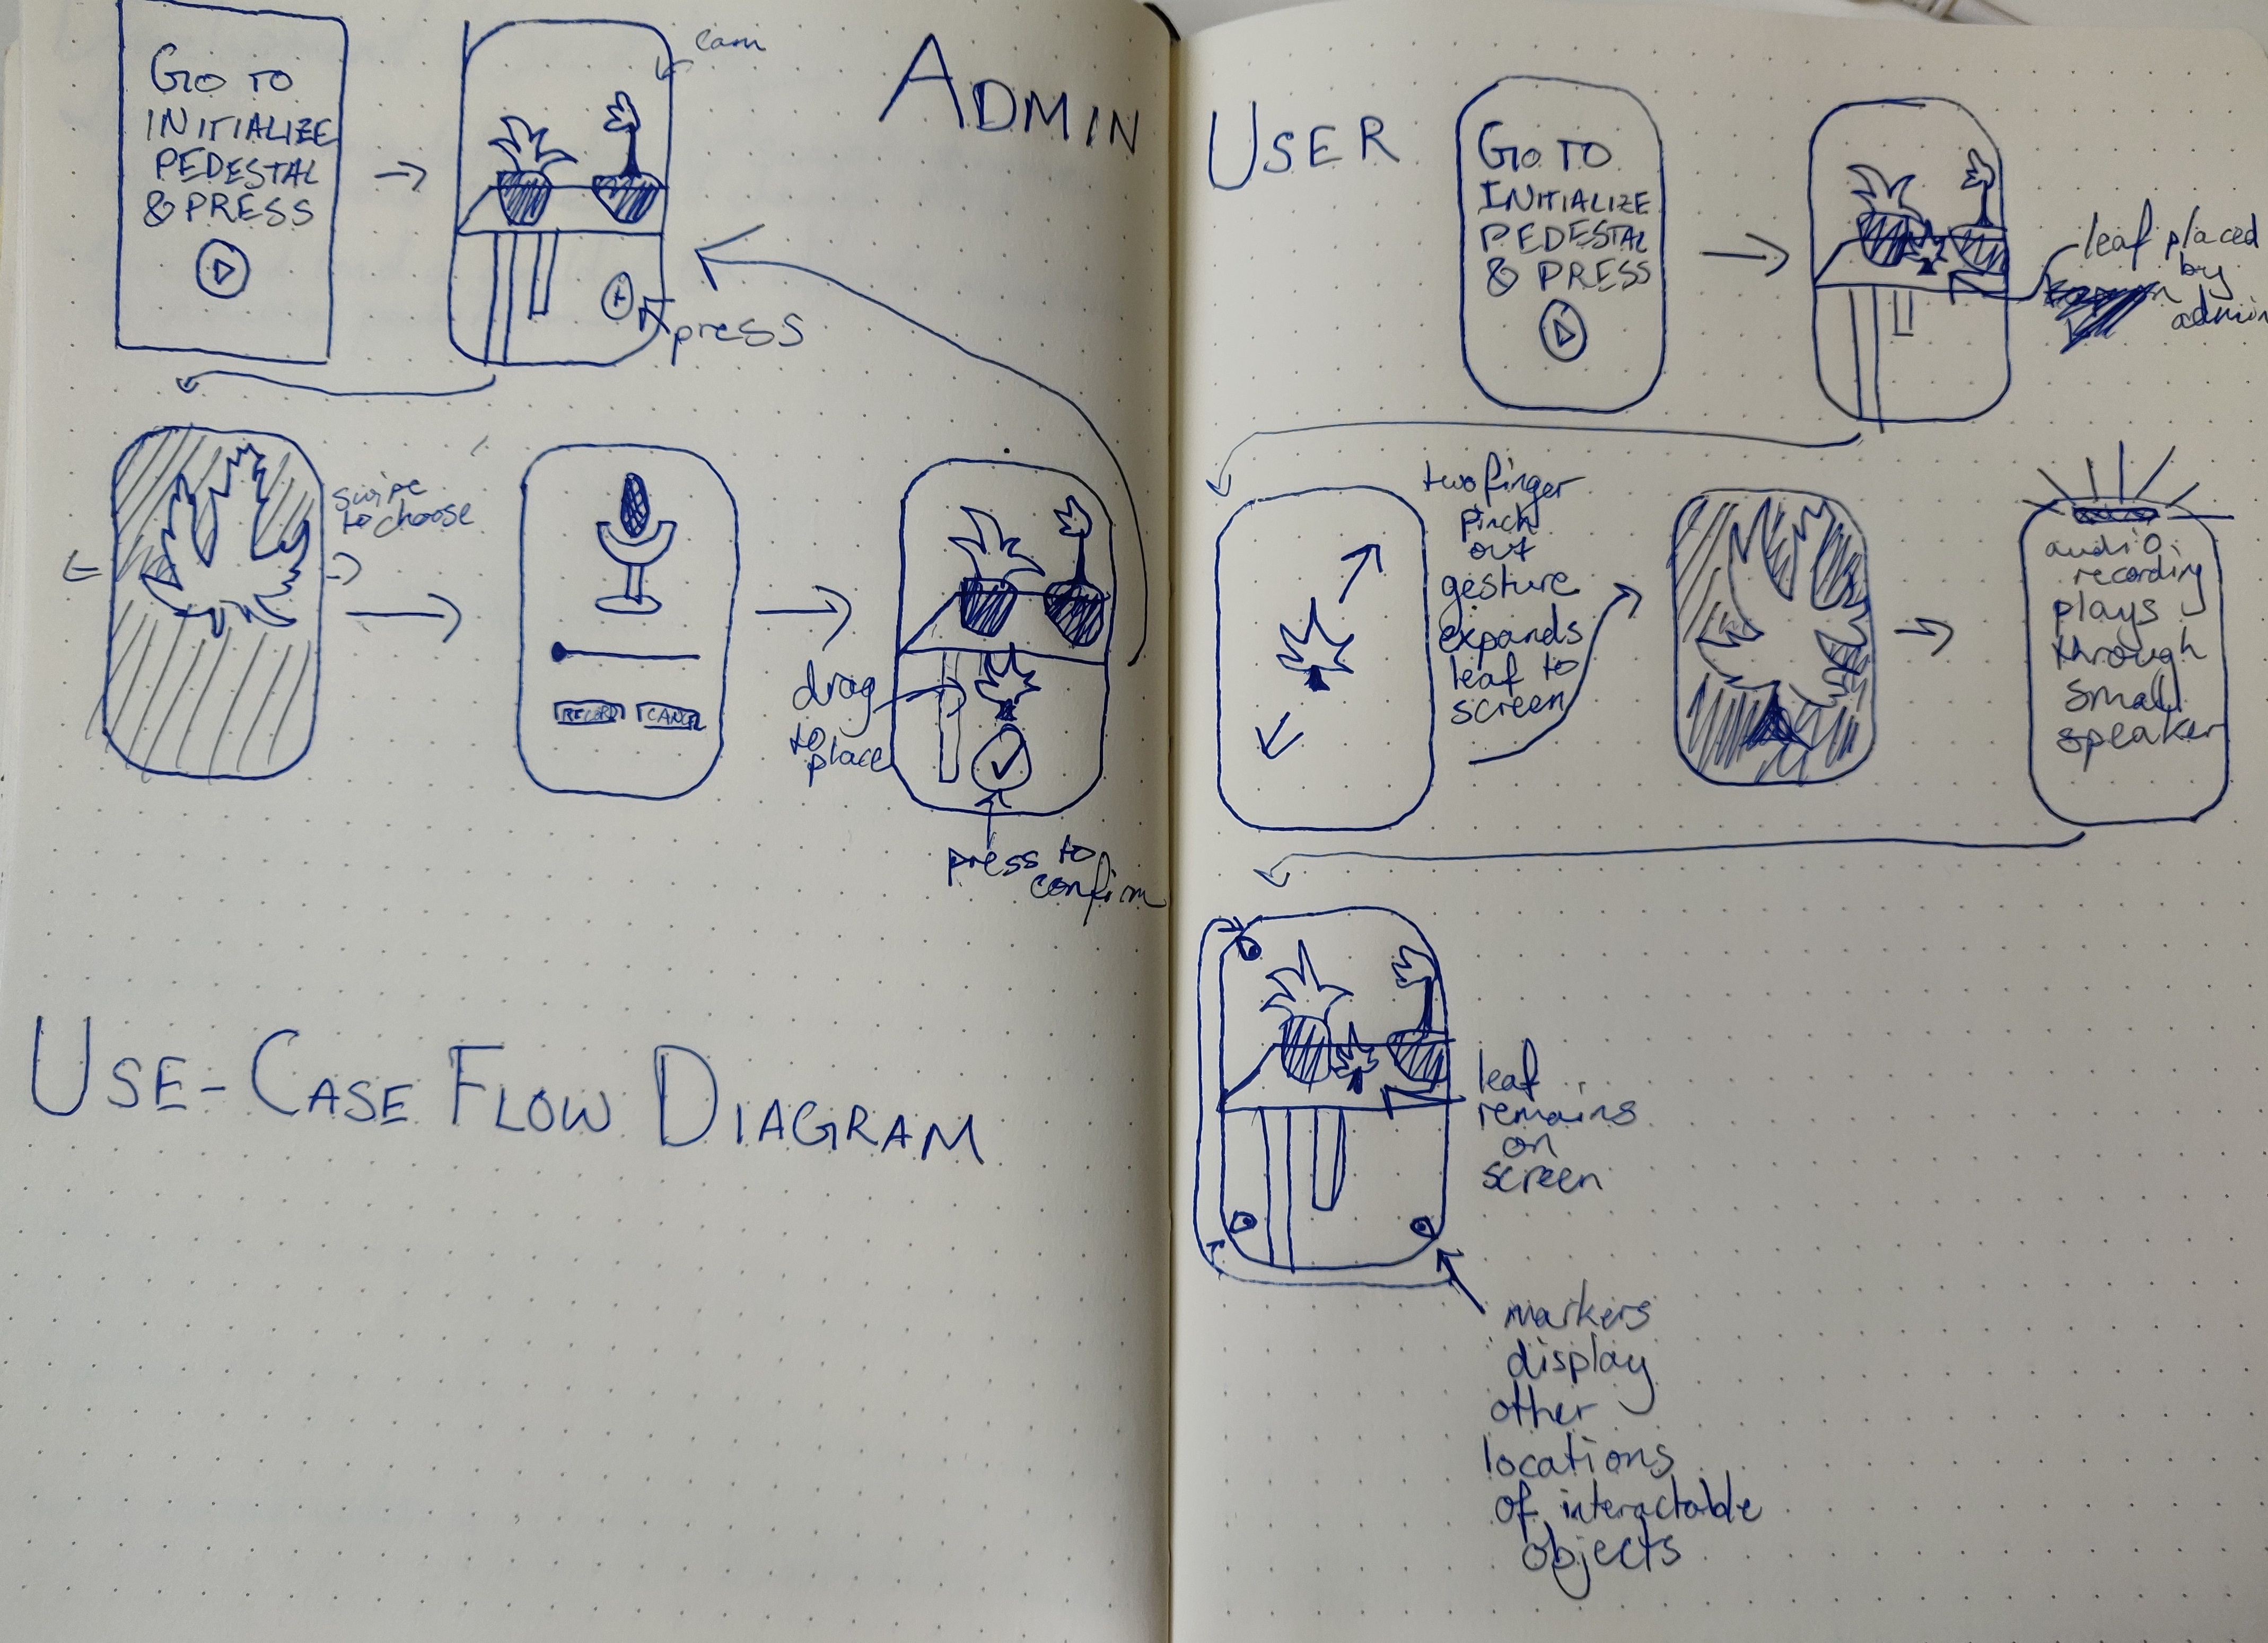 GO TO
INITIALIZE
PEDESTAL
& PRESS
cam
press
ADMIN
swipe
to choose
RECORD CANCEL
drag
to
place
press to
confirm
USE-CASE FLOW DIAGRAM
USER
GO TO
INITIALIZE
PEDESTAL
& PRESS
leaf placed
by
admin
two finger
pinch
out
gesture
expands
leaf to
screen
audio
recording
plays
through
small
speaker
leaf
remains
on
screen
markers
display
other
locations
of interactable
objects